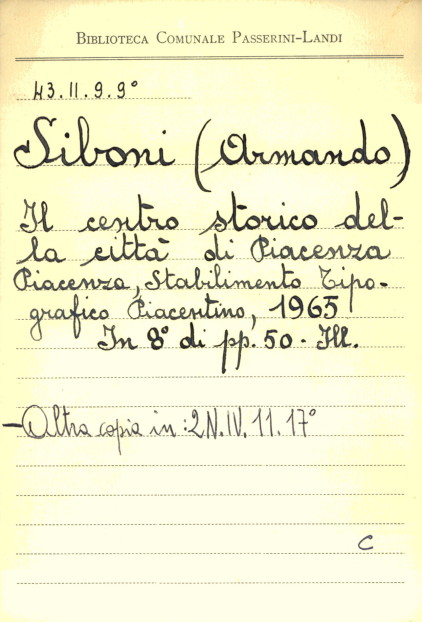 BIBLIOTECA COMUNALE PASSERINI-LANDI
43.II.9.9°
Siboni (Armando)
Il centro storico del-
la città di Piacenza
Piacenza, Stabilimento Tipo-
grafico Piacentino, 1965
In 8° di pp. 50 - Ill.
- Altra copia in: 2N.IV.11.17°
C